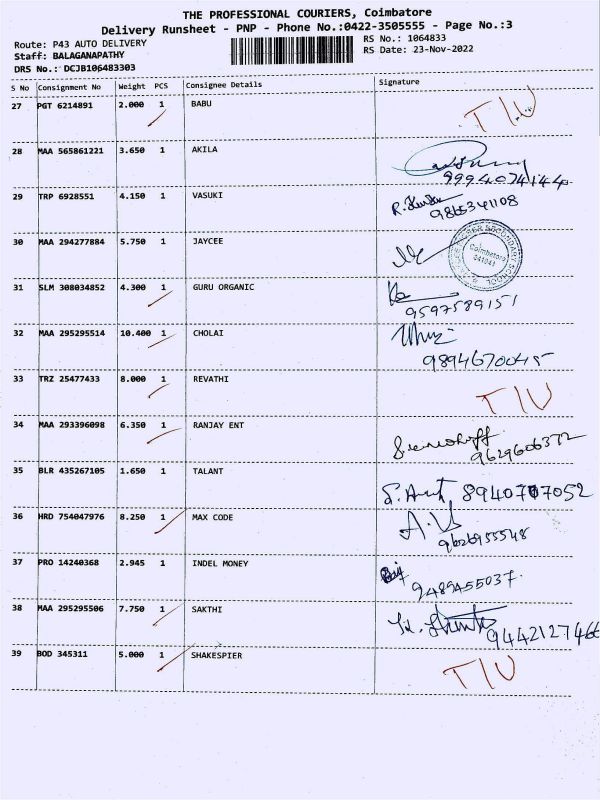 THE PROFESSIONAL COURIERS, Coimbatore
Delivery Runsheet - PNP - Phone No.:0422-3505555 - Page No.:3
Route: P43 AUTO DELIVERY RS No.: 1064833
Staff: BALAGANAPATHY RS Date: 23-Nov-2022
DRS No.: DCJB106483303
S No Consignment No Weight PCS Consignee Details Signature
27 PGT 6214891 2.000 1 BABU T/U
28 MAA 565861221 3.650 1 AKILA
9994074144
29 TRP 6928551 4.150 1 VASUKI
9865341108
30 MAA 294277884 5.750 1 JAYCEE
SECONDARY SCHOOL
Coimbatore
641041
31 SLM 308034852 4.300 1 GURU ORGANIC
9597589151
32 MAA 295295514 10.400 1 CHOLAI
9894670045
33 TRZ 25477433 8.000 1 REVATHI T/U
34 MAA 293396098 6.350 1 RANJAY ENT
9629606372
35 BLR 435267105 1.650 1 TALANT
8940707052
36 HRD 754047976 8.250 1 MAX CODE
9626955548
37 PRO 14240368 2.945 1 INDEL MONEY
9489455037
38 MAA 295295506 7.750 1 SAKTHI
9442127466
39 BOD 345311 5.000 1 SHAKESPIER T/U